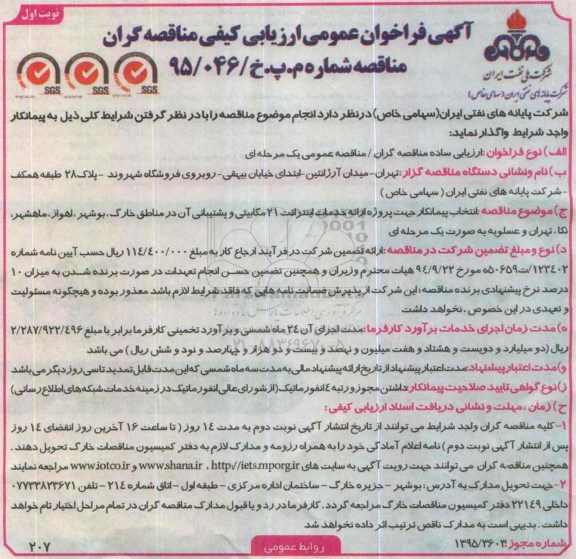 نوبت اول
آگهی فراخوان عمومی ارزیابی کیفی مناقصه گران
مناقصه شماره م.پ.خ/۹۵/۰۴۶
شرکت ملی نفت ایران
شرکت پایانه های نفتی ایران (سهامی خاص)
SGS SGS SGS
شرکت پایانه های نفتی ایران(سهامی خاص) درنظر دارد انجام موضوع مناقصه را با در نظر گرفتن شرایط کلی ذیل به پیمانکار
واجد شرایط واگذار نماید:
الف) نوع فراخوان: ارزیابی ساده مناقصه گران / مناقصه عمومی یک مرحله ای
ب) نام ونشانی دستگاه مناقصه گزار: تهران-میدان آرژانتین-ابتدای خیابان بیهقی- روبروی فروشگاه شهروند -پلاک۲۸ طبقه همکف
-شرکت پایانه های نفتی ایران ( سهامی خاص )
ج) موضوع مناقصه: انتخاب پیمانکار جهت پروژه ارائه خدمات اینترانت ۲۱ مگابیتی و پشتیبانی آن در مناطق خارگ، بوشهر، اهواز، ماهشهر،
نکا، تهران و عسلویه به صورت یک مرحله ای
د) نوع و مبلغ تضمین شرکت در مناقصه: ارائه تضمین شرکت در فرآیند ارجاع کار به مبلغ ۱۱۴/۴۰۰/۰۰۰ ریال حسب آیین نامه شماره
۱۲۳۴۰۲/ت۵۰۶۵۹ه مورخ ۹۴/۹/۲۲ هیات محترم وزیران و همچنین تضمین حسن انجام تعهدات در صورت برنده شدن به میزان ۱۰
درصد نرخ پیشنهادی برنده مناقصه؛ این شرکت از پذیرش ضمانت نامه هایی که فاقد شرایط لازم باشد معذور بوده و هیچگونه مسئولیت
و تعهدی در این خصوص ، نخواهد داشت
ه) مدت زمان اجرای خدمات برآورد کارفرما: مدت اجرای آن ۲۴ ماه شمسی و برآورد تخمینی کارفرما برابر با مبلغ ۲/۲۸۷/۹۲۲/۴۹۶
ریال (دو میلیارد و دویست و هشتاد و هفت میلیون و نهصد و بیست و دو هزار و چهارصد و نود و شش ریال ) می باشد
و) مدت اعتبار پیشنهاد: مدت اعتبار پیشنهاد از تاریخ ارائه پیشنهاد مالی به مدت سه ماه شمسی که این مدت قابل تمدید تا سی روز دیگر می باشد
ز) نوع گواهی تایید صلاحیت پیمانکار: داشتن مجوز و رتبه ۴ انفورماتیک (از شورای عالی انفورماتیک در زمینه خدمات شبکه های اطلاع رسانی)
ح) زمان ، مهلت و نشانی دریافت اسناد ارزیابی کیفی:
۱-کلیه مناقصه گران واجد شرایط می توانند از تاریخ انتشار آگهی نوبت دوم به مدت ۱۴ روز ( تا ساعت ۱۶ آخرین روز انقضای ۱۴ روز
پس از انتشار آگهی نوبت دوم ) نامه اعلام آمادگی خود را به همراه رزومه و مدارک لازم به دفتر کمیسیون مناقصات خارگ تحویل دهند.
همچنین مناقصه گران می توانند جهت رویت آگهی به سایت های www.shana.ir ، http//iets.mporg.ir و www.iotco.ir مراجعه نمایند
۲-جهت تحویل مدارک به آدرس : بوشهر - جزیره خارگ - ساختمان اداره مرکزی - طبقه اول - اتاق شماره ۲۱۴ - تلفن ۰۷۷۳۳۸۲۳۶۷۱
داخلی ۲۲۱۴۹ دفتر کمیسیون مناقصات خارگ مراجعه گردد. کارفرما در رد و یا قبول مدارک مناقصه گران در تمام مراحل اختیار تام خواهد
داشت . بدیهی است به مدارک ناقص ترتیب اثر داده نخواهد شد
شماره مجوز ۱۳۹۵/۳۶۰۳
روابط عمومی
۲۰۷